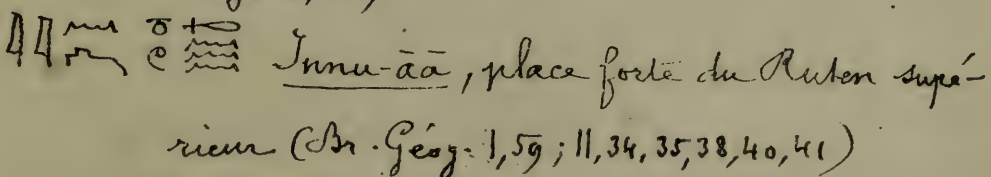 Innu-āā, place forte du Ruten supé-
rieur (Br. Géog. I, 59; II, 34, 35, 38, 40, 41)